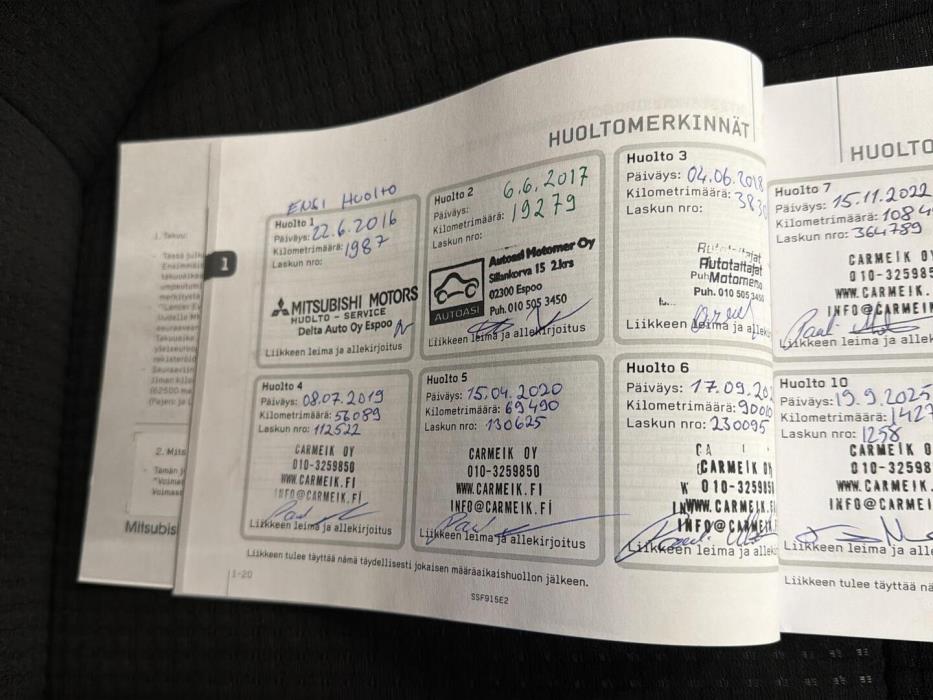 HUOLTOMERKINNÄT
ENSI HUOLTO
Huolto 1
Päiväys: 22.6.2016
Kilometrimäärä: 1987
Laskun nro:
MITSUBISHI MOTORS
HUOLTO - SERVICE
Delta Auto Oy Espoo
Liikkeen leima ja allekirjoitus
Huolto 2
6.6.2017
Päiväys:
Kilometrimäärä: 19279
Laskun nro:
AUTOASI
Autoasi Motomer Oy
Sillankorva 15 2.krs
02300 Espoo
Puh. 010 505 3450
Liikkeen leima ja allekirjoitus
Huolto 3
Päiväys: 04.06.2018
Kilometrimäärä: 3830
Laskun nro:
Puh. 010 505 3450
Liikkeen leima ja allek
Huolto 4
Päiväys: 08.07.2019
Kilometrimäärä: 56089
Laskun nro: 112522
CARMEIK OY
010-3259850
WWW.CARMEIK.FI
INFO@CARMEIK.FI
Liikkeen leima ja allekirjoitus
Huolto 5
Päiväys: 15.04.2020
Kilometrimäärä: 69490
Laskun nro: 130625
CARMEIK OY
010-3259850
WWW.CARMEIK.FI
INFO@CARMEIK.FI
Liikkeen leima ja allekirjoitus
Huolto 6
Päiväys: 17.09.20
Kilometrimäärä:
Laskun nro: 230095
CARMEIK OY
010-325985
WWW.CARMEIK
INFO@CARMEIK
Liikkeen leima ja allek
Liikkeen tulee täyttää nämä täydellisesti jokaisen määräaikaishuollon jälkeen.
1-20
SSF915E2
1
1. Takuu:
2. Mits
Mitsubis
HUOLTO
Huolto 7
Päiväys: 15.11.2022
Kilometrimäärä: 1084
Laskun nro: 364789
CARMEIK O
010-32598
WWW.CARMEIK.
INFO@CARMEIK
Liikkeen leima ja allekirj
Huolto 10
Päiväys: 19.9.2025
Kilometrimäärä: 1427
Laskun nro: 1258
CARMEIK O
010-32598
WWW.CARMEIK.
INFO@CARMEIK
Liikkeen leima ja allekirj
Liikkeen tulee täyttää nä